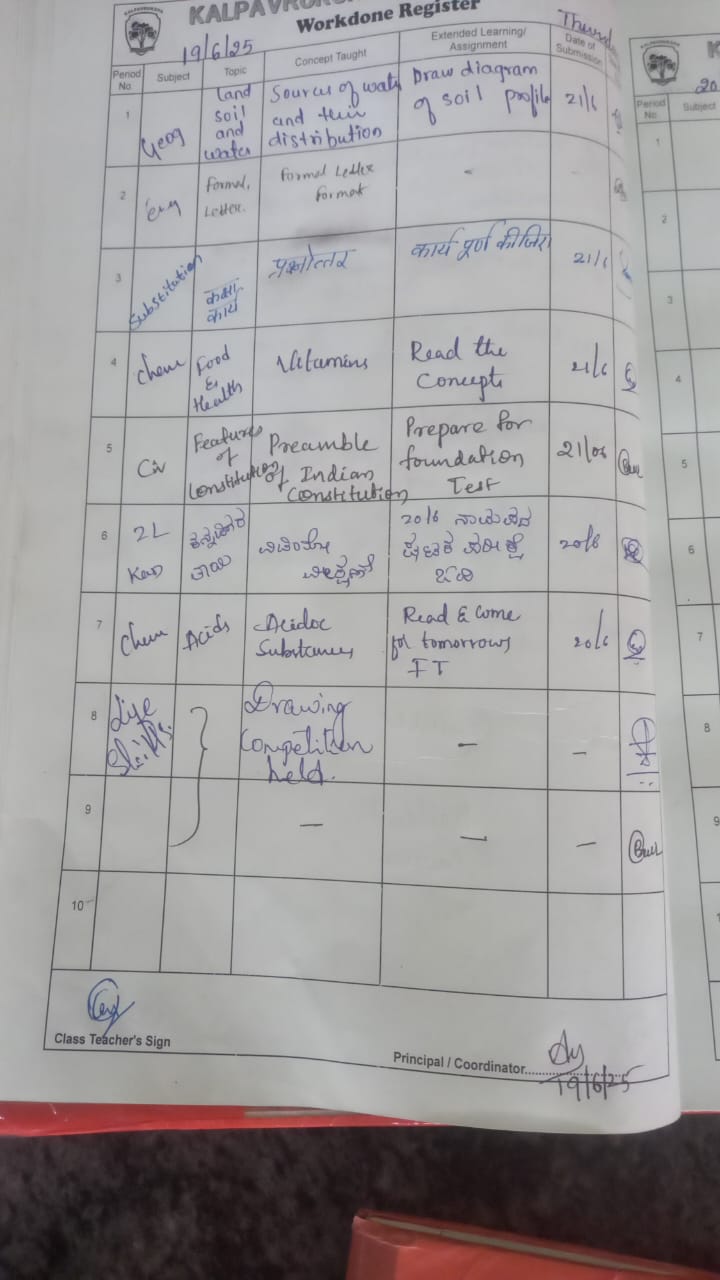 Workdone Register
19/6/25
Period No.
Subject
Topic
Concept Taught
Extended Learning/ Assignment
Date of Submission
1
Geog
Land soil and water
Sources of water and their distribution
Draw diagram of soil profile
21/6
2
Eng
Formal Letter.
Formal Letter format
-
3
Substitution
कक्षा कार्य
प्रश्नोत्तर
कार्य पूर्ण कीजिए
21/6
4
Chem
Food & Health
Vitamins
Read the Concepts
21/6
5
Civ
Features of Constitution
Preamble of Indian Constitution
Prepare for foundation Test
21/06
6
2L Kan
20/6
20/6
7
Chem
Acids
Acidic Substances
Read & Come for tomorrows FT
20/6
8
Life Skills.
Drawing Competition held.
—
—
9
—
—
—
10
Class Teacher's Sign
Principal / Coordinator
19/6/25
20
Period No.
Subject
1
2
3
4
5
6
7
8
9